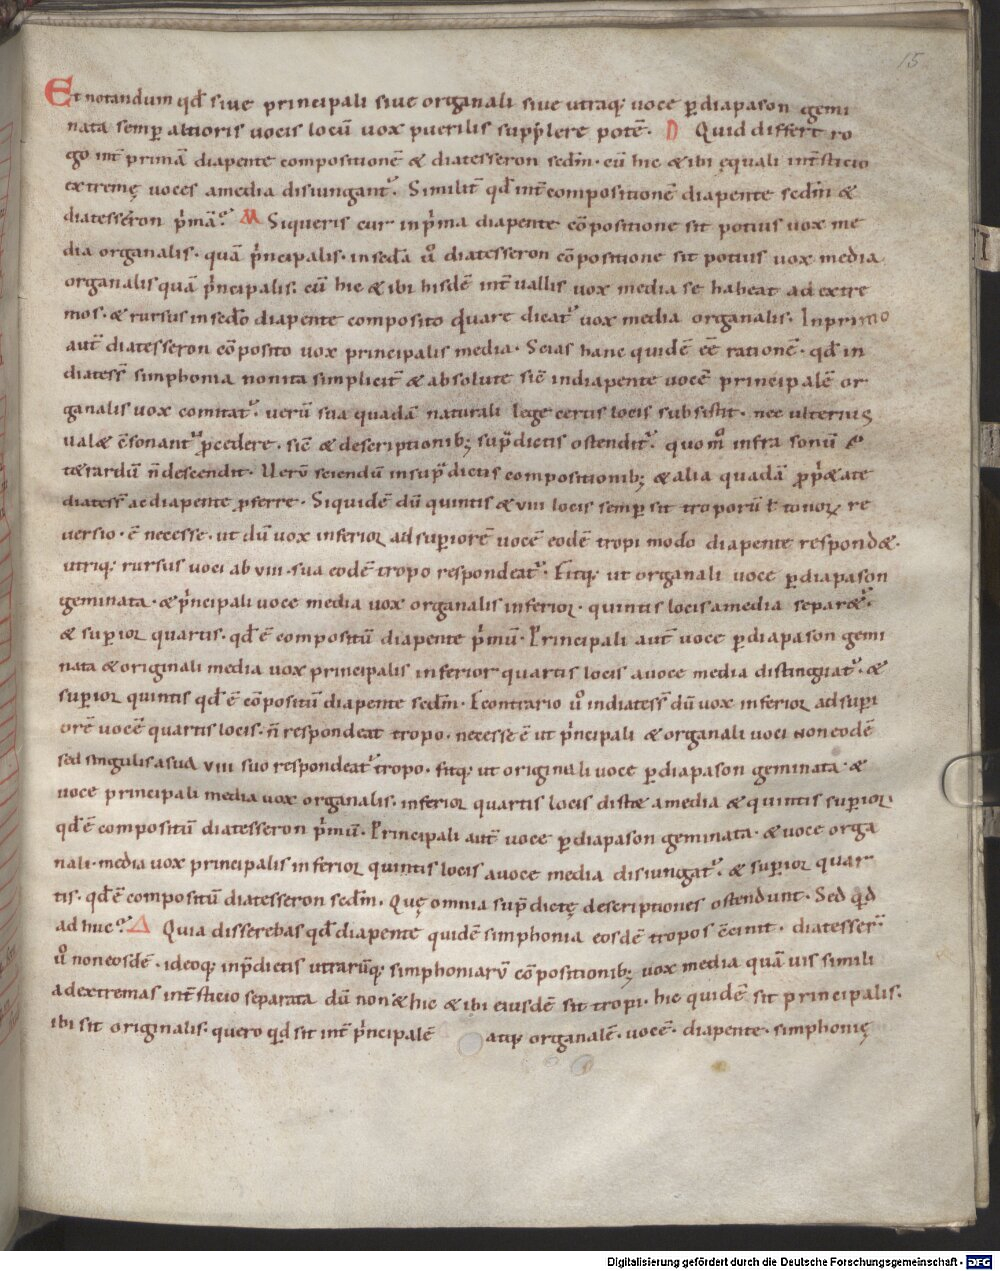 15
Et notandum qđ siue principali siue organali siue utraq; uoce ꝑ diapason gemi
nata semꝑ altioris uocis locū uox puerilis supplere potē. D Quid differt ro
go int̄ primā diapente compositionē & diatesseron sedm̄. cū hic & ibi ęquali int̄sticio
extremę uoces a media disiungant᷑. Similit̄ qđ int̄ compositionē diapente sedm̄ &
diatesseron p̍mā? M Si queris cur in p̍ma diapente cōpositione sit potius uox me
dia organalis. quā p̍ncipalis. in seđa u̍o diatesseron cōpositione sit potius uox media
organalis quā p̍ncipalis. cū hic & ibi hisdē int̄uallis uox media se habeat ad extre
mos. & rursus in seđo diapente composito quare dicat᷑ uox media organalis. In primo
aut̄ diatesseron cōposito uox principalis media. Scias hanc quidē eē rationē. qđ in
diatess̄ simphonia non ita simplicit̄ & absolute sic̄ in diapente uocē principalē or
ganalis uox comitat᷑. uerū sua quadā naturali lege certis locis subsistit. nec ulterius
ual& c̄sonant᷑ ꝓcedere. sic̄ & descriptionib; sup̄dictis ostendit᷑. quom̊ infra sonū
t&rardū n̄ descendit. Uerū sciendū in sup̄dictis compositionib; & alia quadā ꝓp̍&ate
diatess̄ ac diapente ꝓferre. Siquidē dū quintis & VIII locis semꝑ sit troporū ł tonoꝝ re
uersio. ē necesse. ut dū uox inferior ad suꝑiorē uocē eodē tropi modo diapente respond&.
utriq; rursus uoci ab VIII. sua eodē tropo respondeat᷑. Fitq; ut organali uoce ꝑ diapason
geminata. & p̍ncipali uoce media uox organalis inferior. quintis locis a media separ&᷑.
& suꝑior quartis. qđ ē compositū diapente p̍mū. Principali aut̄ uoce ꝑ diapason gemi
nata & originali media uox principalis inferior quartis locis a uoce media distinguat᷑. &
suꝑior quintis qđ ē cōpositū diapente sedm̄. Econtrario u̍o in diatess̄ dū uox inferior ad suꝑi
orē uocē quartis locis. n̄ respondeat tropo. necesse ē ut p̍ncipali & organali uoci non eodē
sed singulis a sua VIII suo respondeat᷑ tropo. fitq; ut originali uoce ꝑ diapason geminata. &
uoce principali media uox organalis. inferior quartis locis dist& a media & quintis suꝑior.
qđ ē compositū diatesseron p̍mū. Principali aut̄ uoce ꝑ diapason geminata. & uoce orga
nali. media uox principalis inferior quintis locis a uoce media disiungat᷑. & suꝑior quar
tis. qđ ē compositū diatesseron sedm̄. Quę omnia sup̄dictę descriptiones ostendunt. Sed qđ
ad huc? Δ Quia disserebas qđ diapente quidē simphonia eosdē tropos c̄cinit. diatesser̄
u̍o non eosdē. ideoq; in p̄dictis utrarūq; simphoniarū cōpositionib; uox media quāuis simili
ad extremas int̄sticio separata dū non & hic & ibi eiusdē sit tropi. hic quidē sit principalis.
ibi sit originalis. quero qđ sit int̄ p̍ncipalē atq; organalē. uocē. diapente. simphonię
Digitalisierung gefördert durch die Deutsche Forschungsgemeinschaft - DFG